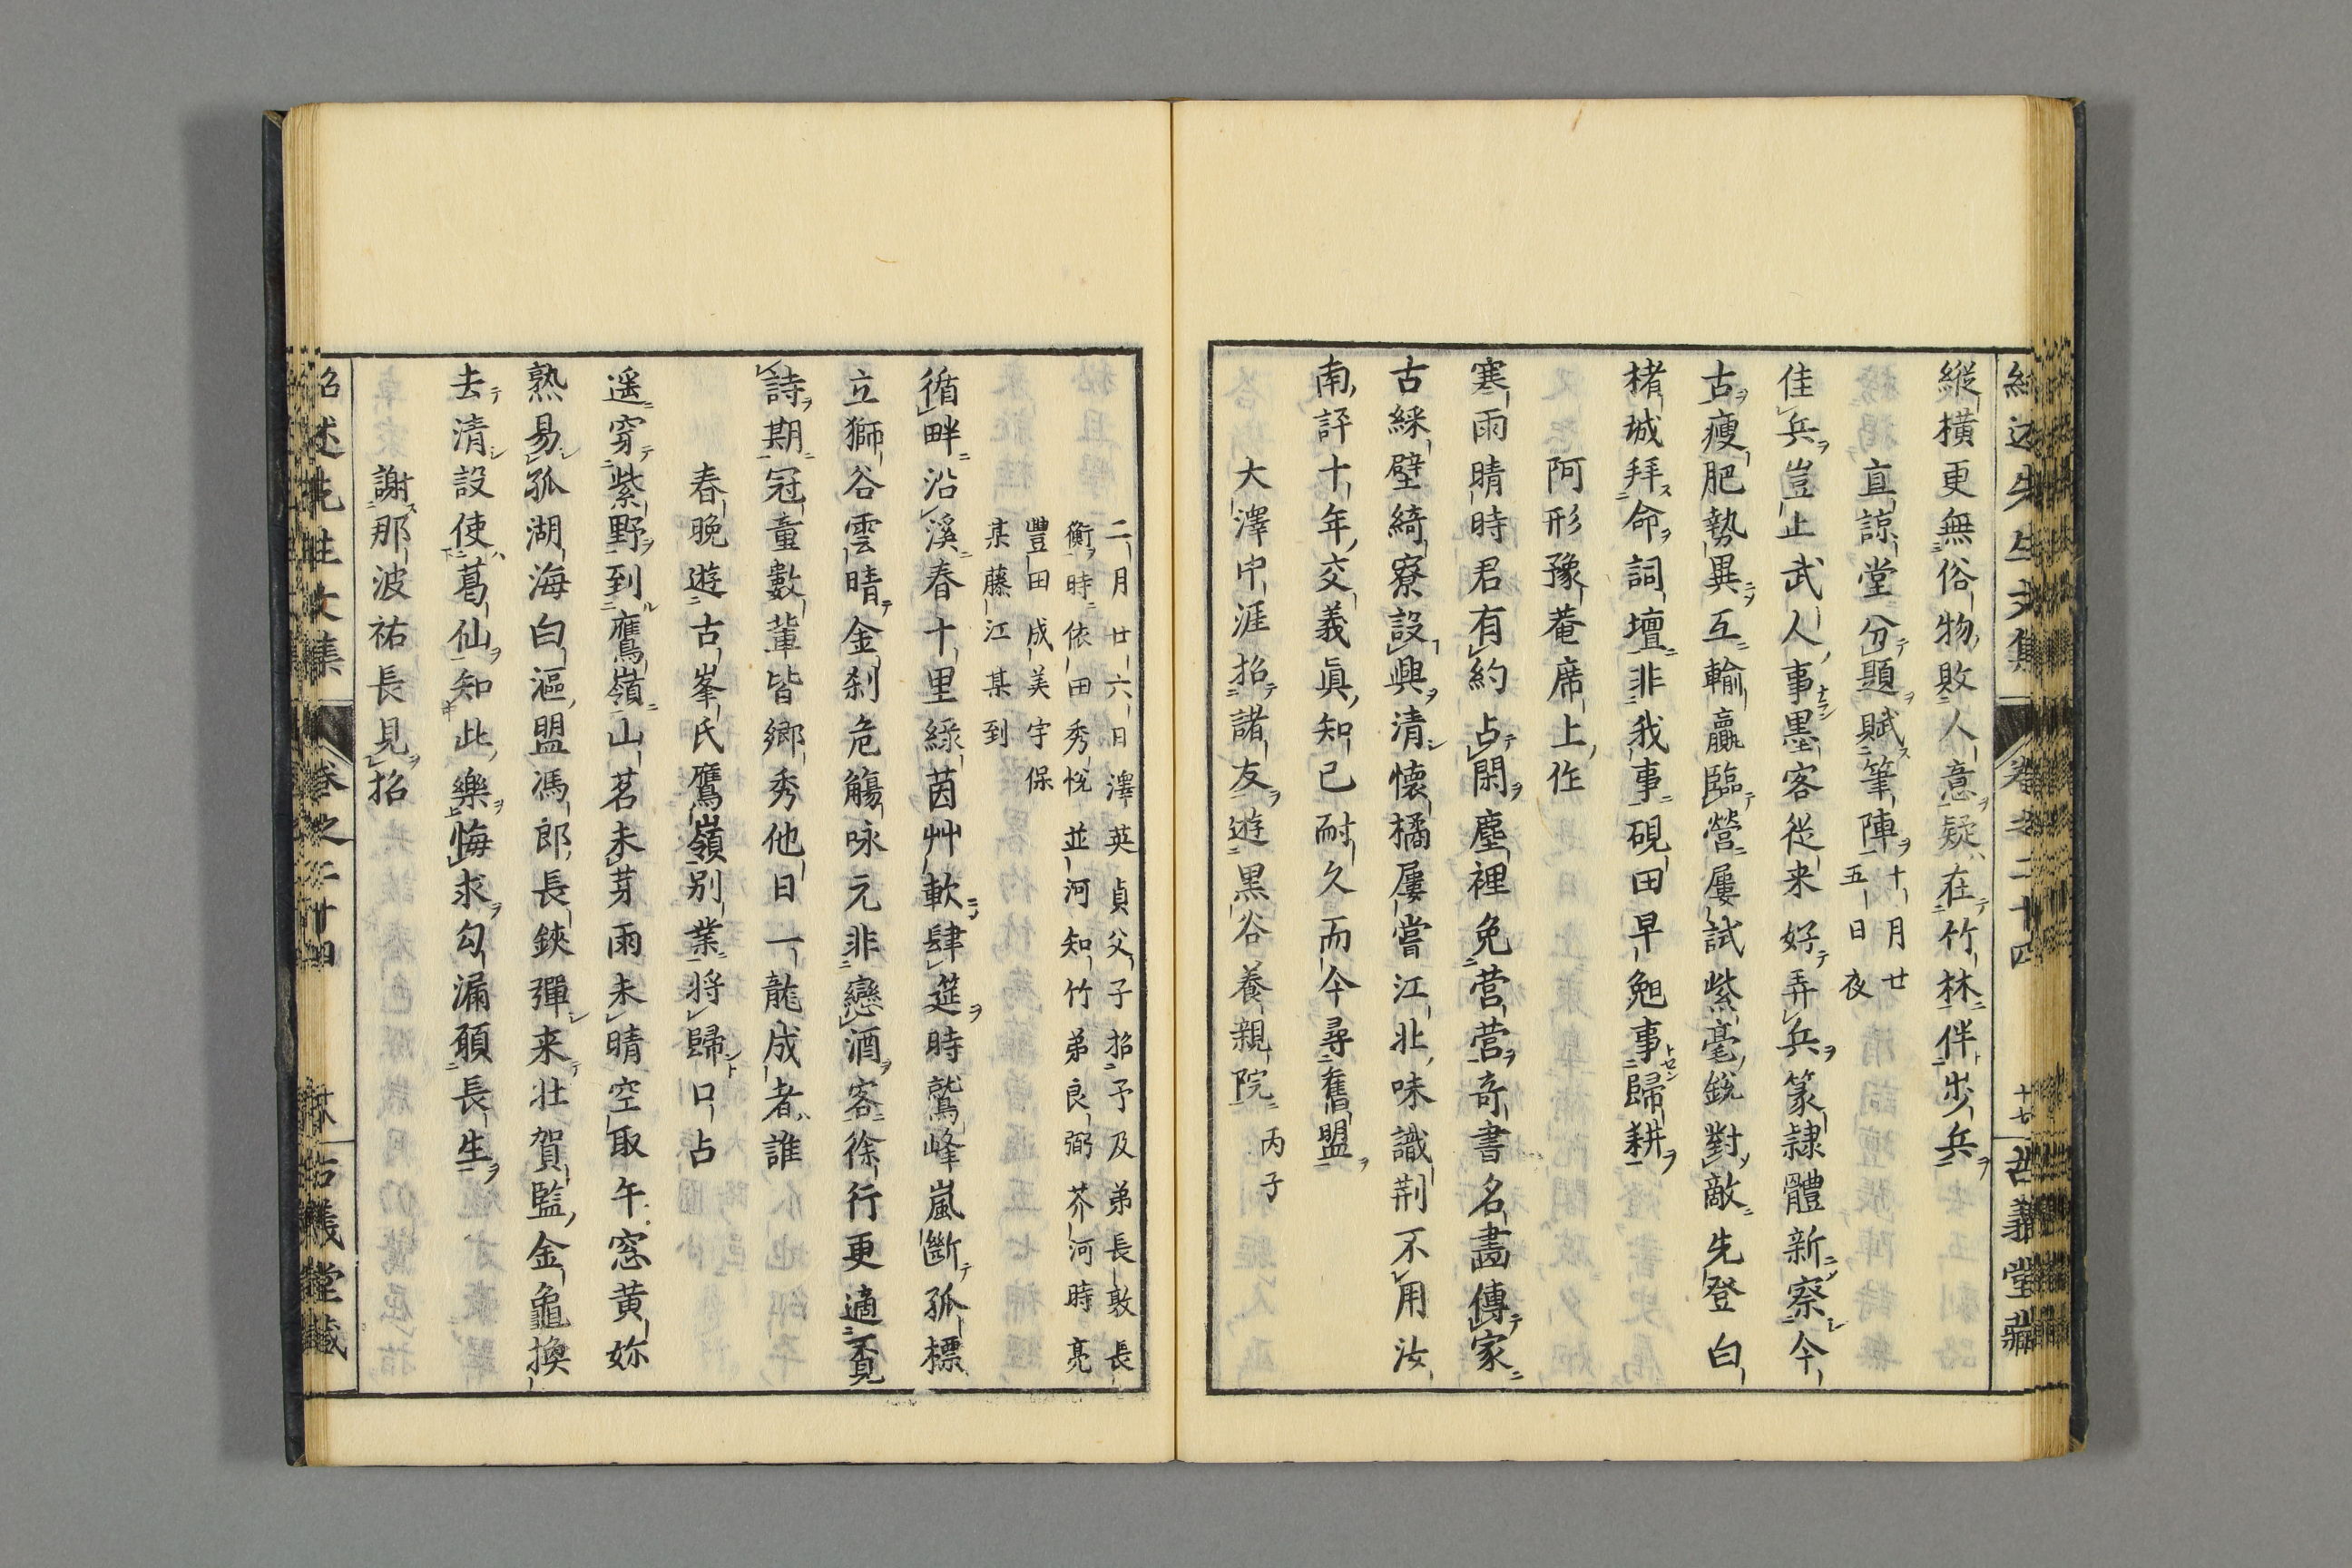 紹述先生文集 卷之二十四 十七 古義堂藏
縱橫更無俗物敗人意疑在竹林伴步兵
直諒堂分題賦筆陣十月廿
五日夜
佳兵豈止武人事墨客從来好弄兵篆隷體新察今
古瘦肥勢異互輸贏臨營屢試紫毫銳對敵先登白
楮城拜命詞壇非我事硯田早勉事歸耕
阿形豫菴席上作
寒雨晴時君有約占閑塵裡免营营奇書名畵傳家
古綵壁綺寮設興清懷橘屢嘗江北味識荆不用汝
南評十年交義眞知已耐久而今尋舊盟
大澤中涯招諸友遊黒谷養親院丙子
二月廿六日澤英貞父子招予及弟長敦長
衡時依田秀悅並河知竹弟良弼芥河時亮
豐田成美宇保
某藤江某到
循畔沿溪春十里綠茵艸軟肆筵時鷲峰嵐斷孤標
立獅谷雲晴金刹危觴咏元非戀酒客徐行更適覔
詩期冠童數輩皆鄉秀他日一龍成者誰
春晚遊古峯氏鷹嶺别業將歸口占
遥穿紫野到鷹嶺山茗未芽雨未晴空取午窓黄妳
熟易孤湖海白漚盟馮郎長鋏彈来壮賀監金龜換
去清設使葛仙知此樂悔求勾漏願長生
謝那波祐長見招
紹述先生文集 卷之二十四 古義堂藏